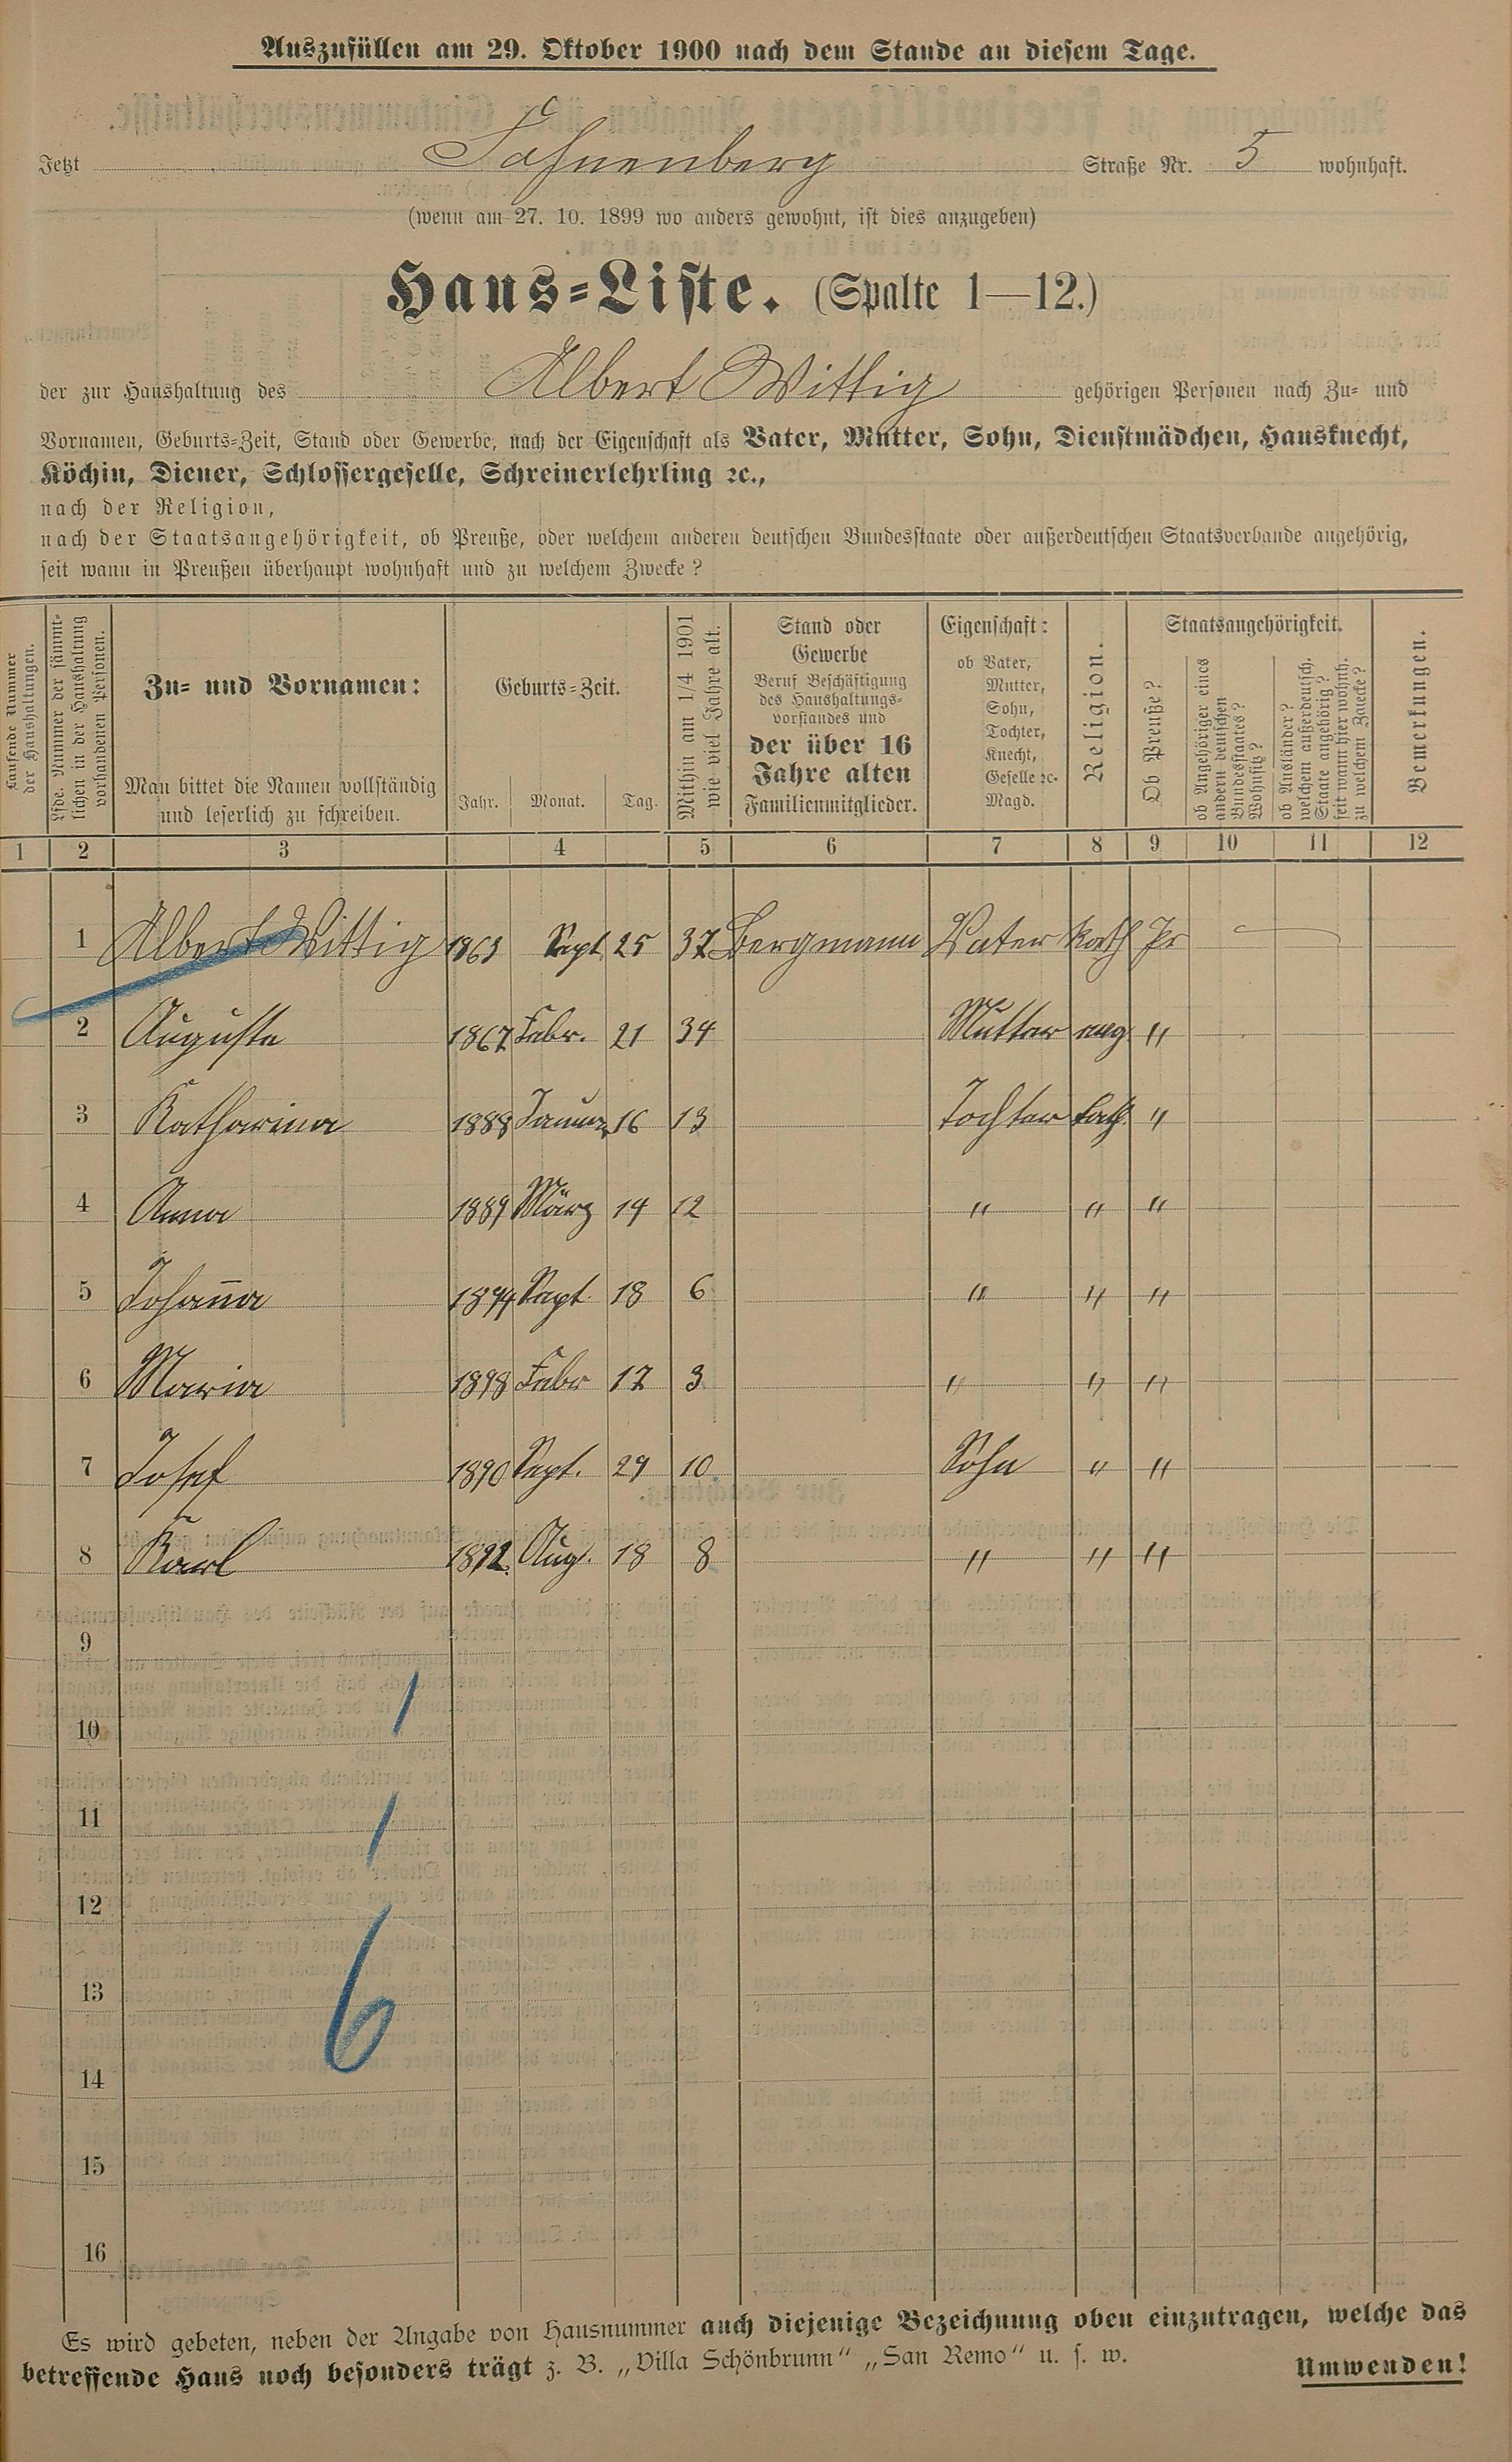 Auszufüllen am 29. Oktober 1900 nach dem Stande an diesem Tage.
Jetzt Fahnenberg Straße Nr. 5 wohnhaft.
(wenn am 27. 10. 1899 wo anders gewohnt, ist dies anzugeben)
Haus-Liste. (Spalte 1—12.)
der zur Haushaltung des Albert Wittig gehörigen Personen nach Zu- und
Vornamen, Geburts-Zeit, Stand oder Gewerbe, nach der Eigenschaft als Vater, Mutter, Sohn, Dienstmädchen, Hausknecht,
Köchin, Diener, Schlossergeselle, Schreinerlehrling ꝛc.,
nach der Religion,
nach der Staatsangehörigkeit, ob Preuße, oder welchem anderen deutschen Bundesstaate oder außerdeutschen Staatsverbande angehörig,
seit wann in Preußen überhaupt wohnhaft und zu welchem Zwecke?
Laufende Nummer
der Haushaltungen.
Lfde. Nummer der sämmt-
lichen in der Haushaltung
vorhandenen Personen.
Zu- und Vornamen:
Man bittet die Namen vollständig
und leserlich zu schreiben.
Geburts-Zeit.
Jahr. Monat. Tag.
Mithin am 1/4 1901
wie viel Jahre alt.
Stand oder
Gewerbe
Beruf Beschäftigung
des Haushaltungs-
vorstandes und
der über 16
Jahre alten
Familienmitglieder.
Eigenschaft:
ob Vater,
Mutter,
Sohn,
Tochter,
Knecht,
Geselle ꝛc.
Magd.
Religion.
Staatsangehörigkeit.
Ob Preuße?
ob Angehöriger eines
andern deutschen
Bundesstaates?
Wohnsitz?
ob Ausländer?
welchem außerdeutsch.
Staate angehörig?
seit wann hier wohnh.
zu welchem Zwecke?
Bemerkungen.
1 2 3 4 5 6 7 8 9 10 11 12
1 Albert Wittig 1863 Sept 25 37 Bergmann Vater kath Pr
2 Auguste 1867 Febr. 21 34 Mutter evg "
3 Katharina 1888 Januar 16 13 Tochter kath. "
4 Anna 1889 März 14 12 " " "
5 Johan̄a 1894 Sept. 18 6 " " "
6 Maria 1898 Febr 17 3 " " "
7 Josef 1890 Sept. 29 10 Sohn " "
8 Karl 1892 Aug. 18 8 " " "
9
10 1
11 1
12
13 6
14
15
16
Es wird gebeten, neben der Angabe von Hausnummer auch diejenige Bezeichnung oben einzutragen, welche das
betreffende Haus noch besonders trägt z. B. „Villa Schönbrunn“ „San Remo“ u. s. w. Umwenden!